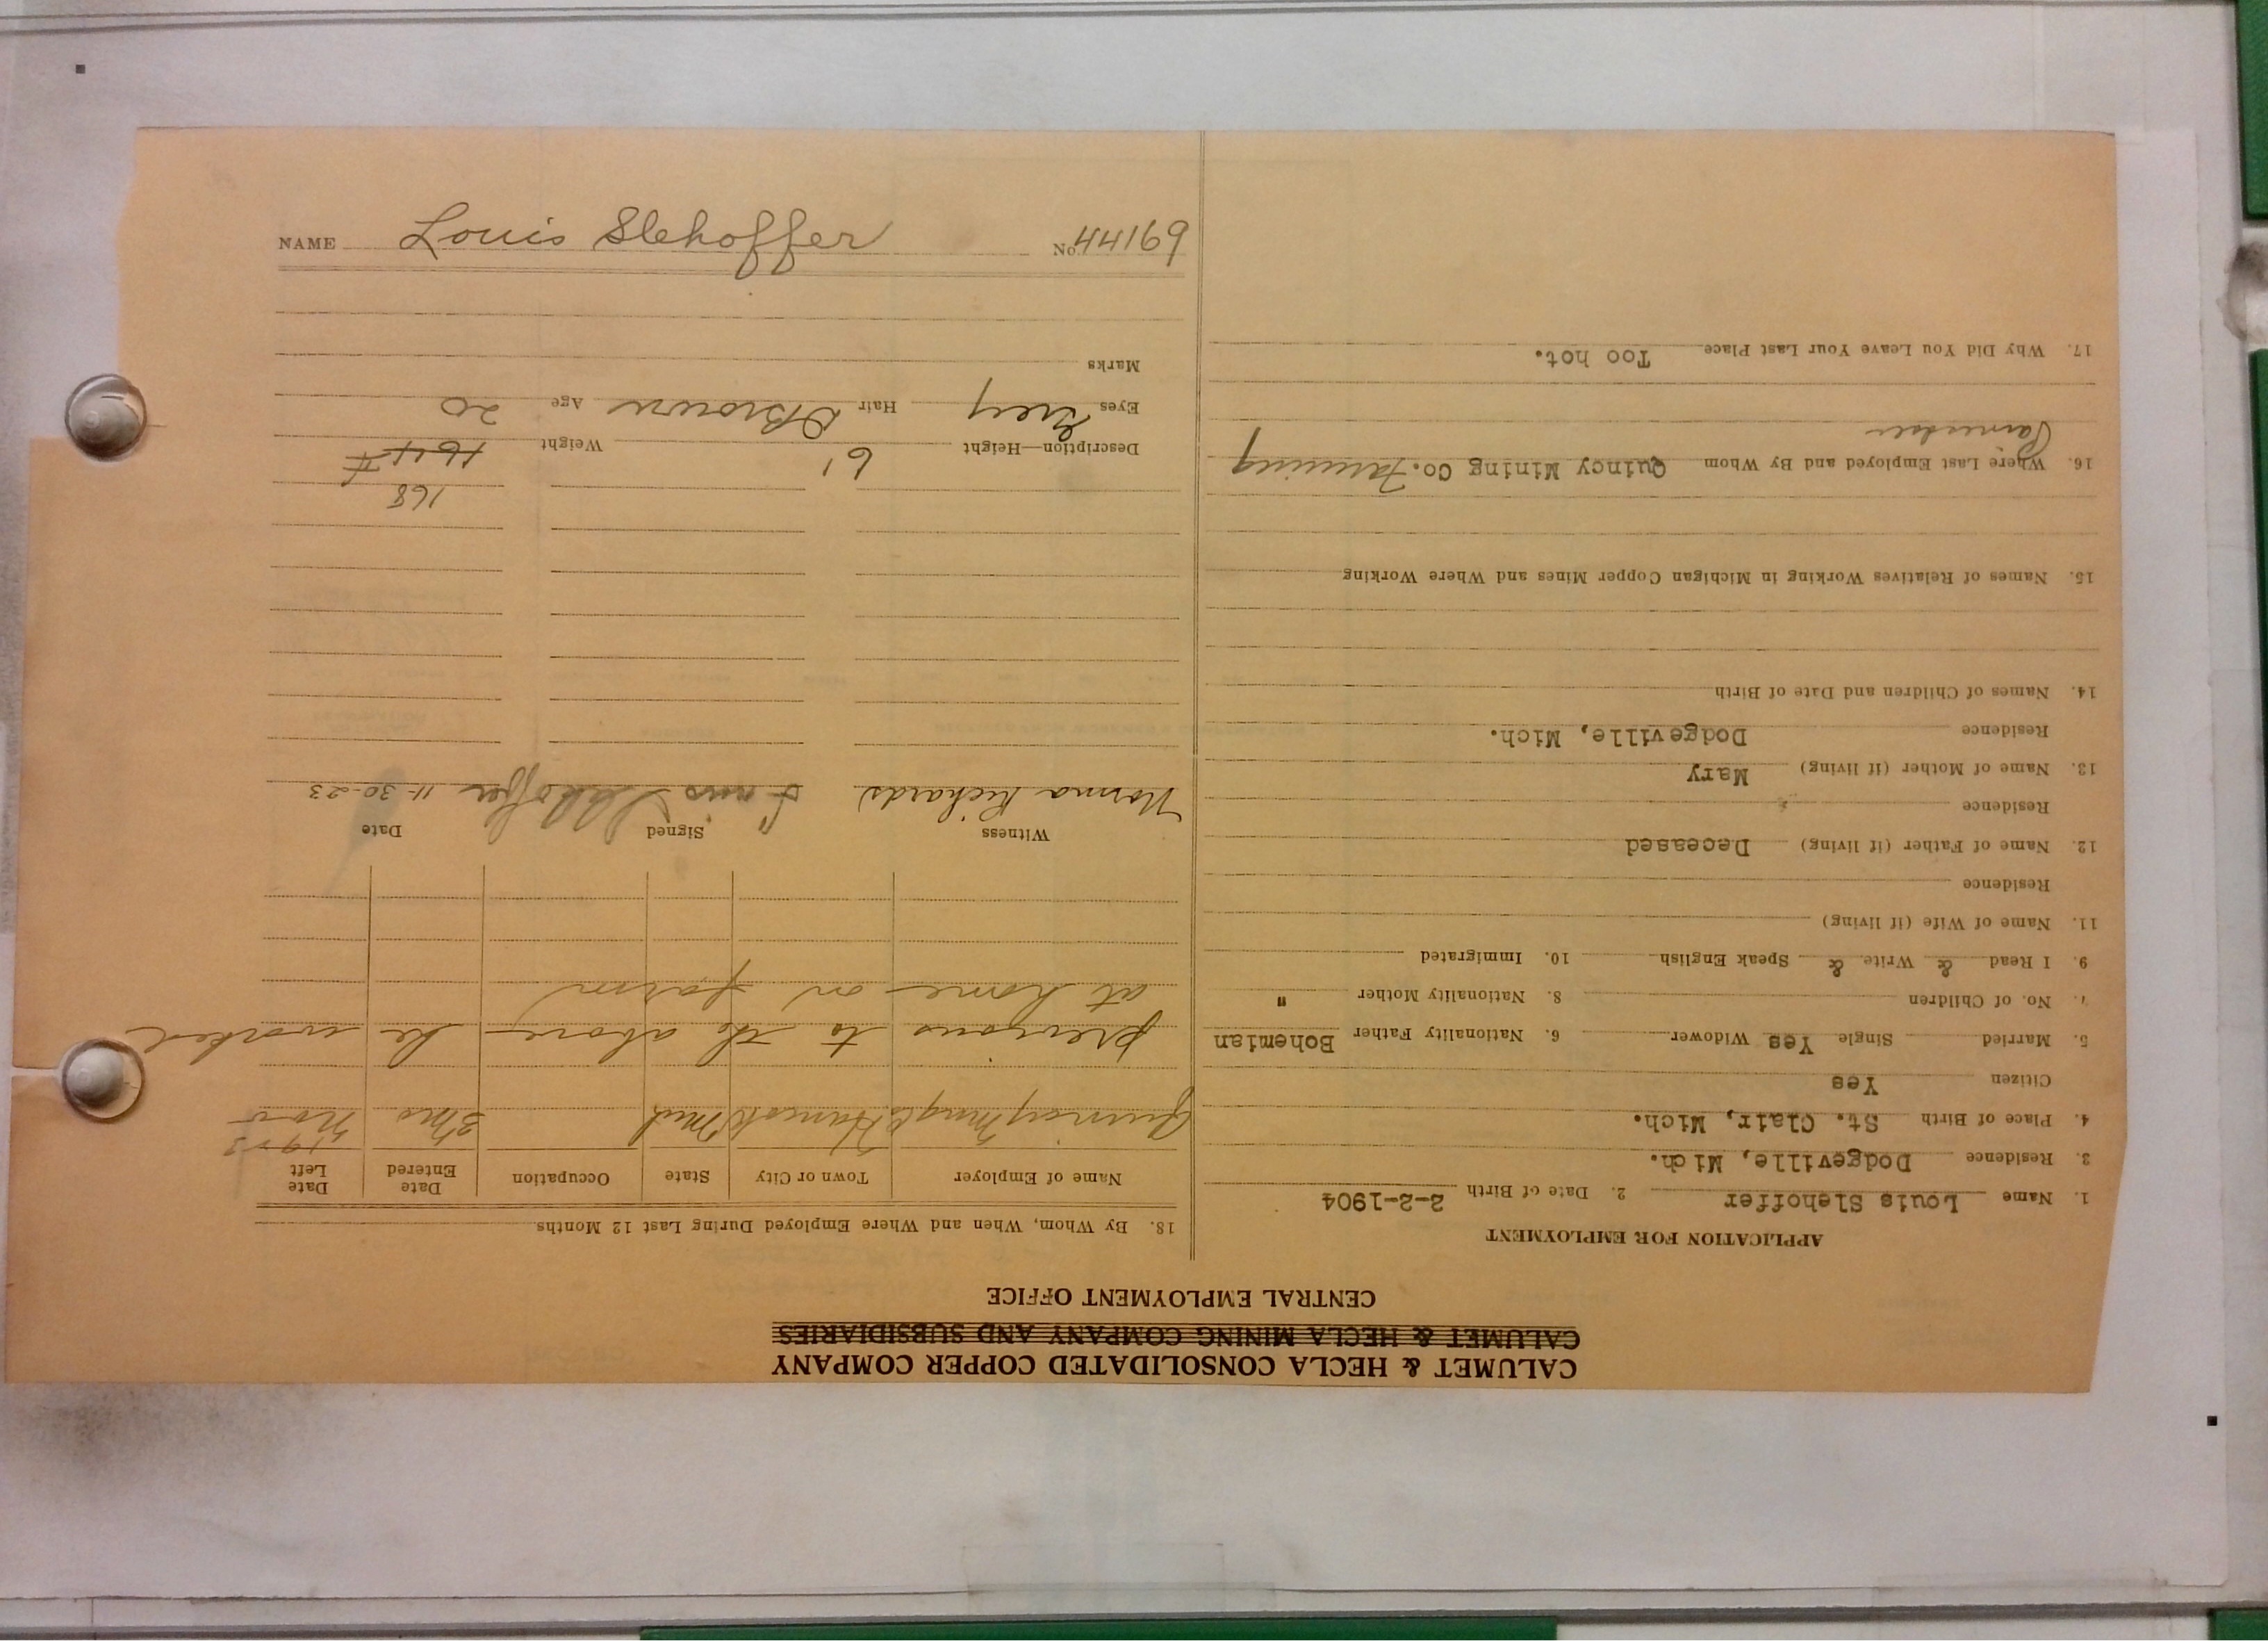 CALUMET & HECLA CONSOLIDATED COPPER COMPANY
CALUMET & HECLA MINING COMPANY AND SUBSIDIARIES
CENTRAL EMPLOYMENT OFFICE
APPLICATION FOR EMPLOYMENT
1. Name Louis Slehoffer 2. Date of Birth 2-2-1904
3. Residence Dodgeville, Mich.
4. Place of Birth St. Clair, Mich.
Citizen Yes
5. Married Single Yes Widower 6. Nationality Father Bohemian
7. No. of Children 8. Nationality Mother "
9. I Read & Write & Speak English 10. Immigrated
11. Name of Wife (if living)
Residence
12. Name of Father (if living) Deceased
Residence
13. Name of Mother (if living) Mary
Residence Dodgeville, Mich.
14. Names of Children and Date of Birth
15. Names of Relatives Working in Michigan Copper Mines and Where Working
16. Where Last Employed and By Whom Quincy Mining Co.
17. Why Did You Leave Your Last Place Too hot.
18. By Whom, When and Where Employed During Last 12 Months
Name of Employer Town or City State Occupation Date Entered Date Left
Quincy Mng Co Hancock Mich 3 mo Nov 1923
previous to the above he worked
at home on farm
Witness Signed Date
Norma Richards Louis Slehoffer 11-30-23
168
Description—Height 6' Weight 164 #
Eyes Grey Hair Brown Age 20
Marks
NAME Louis Slehoffer No. 44169